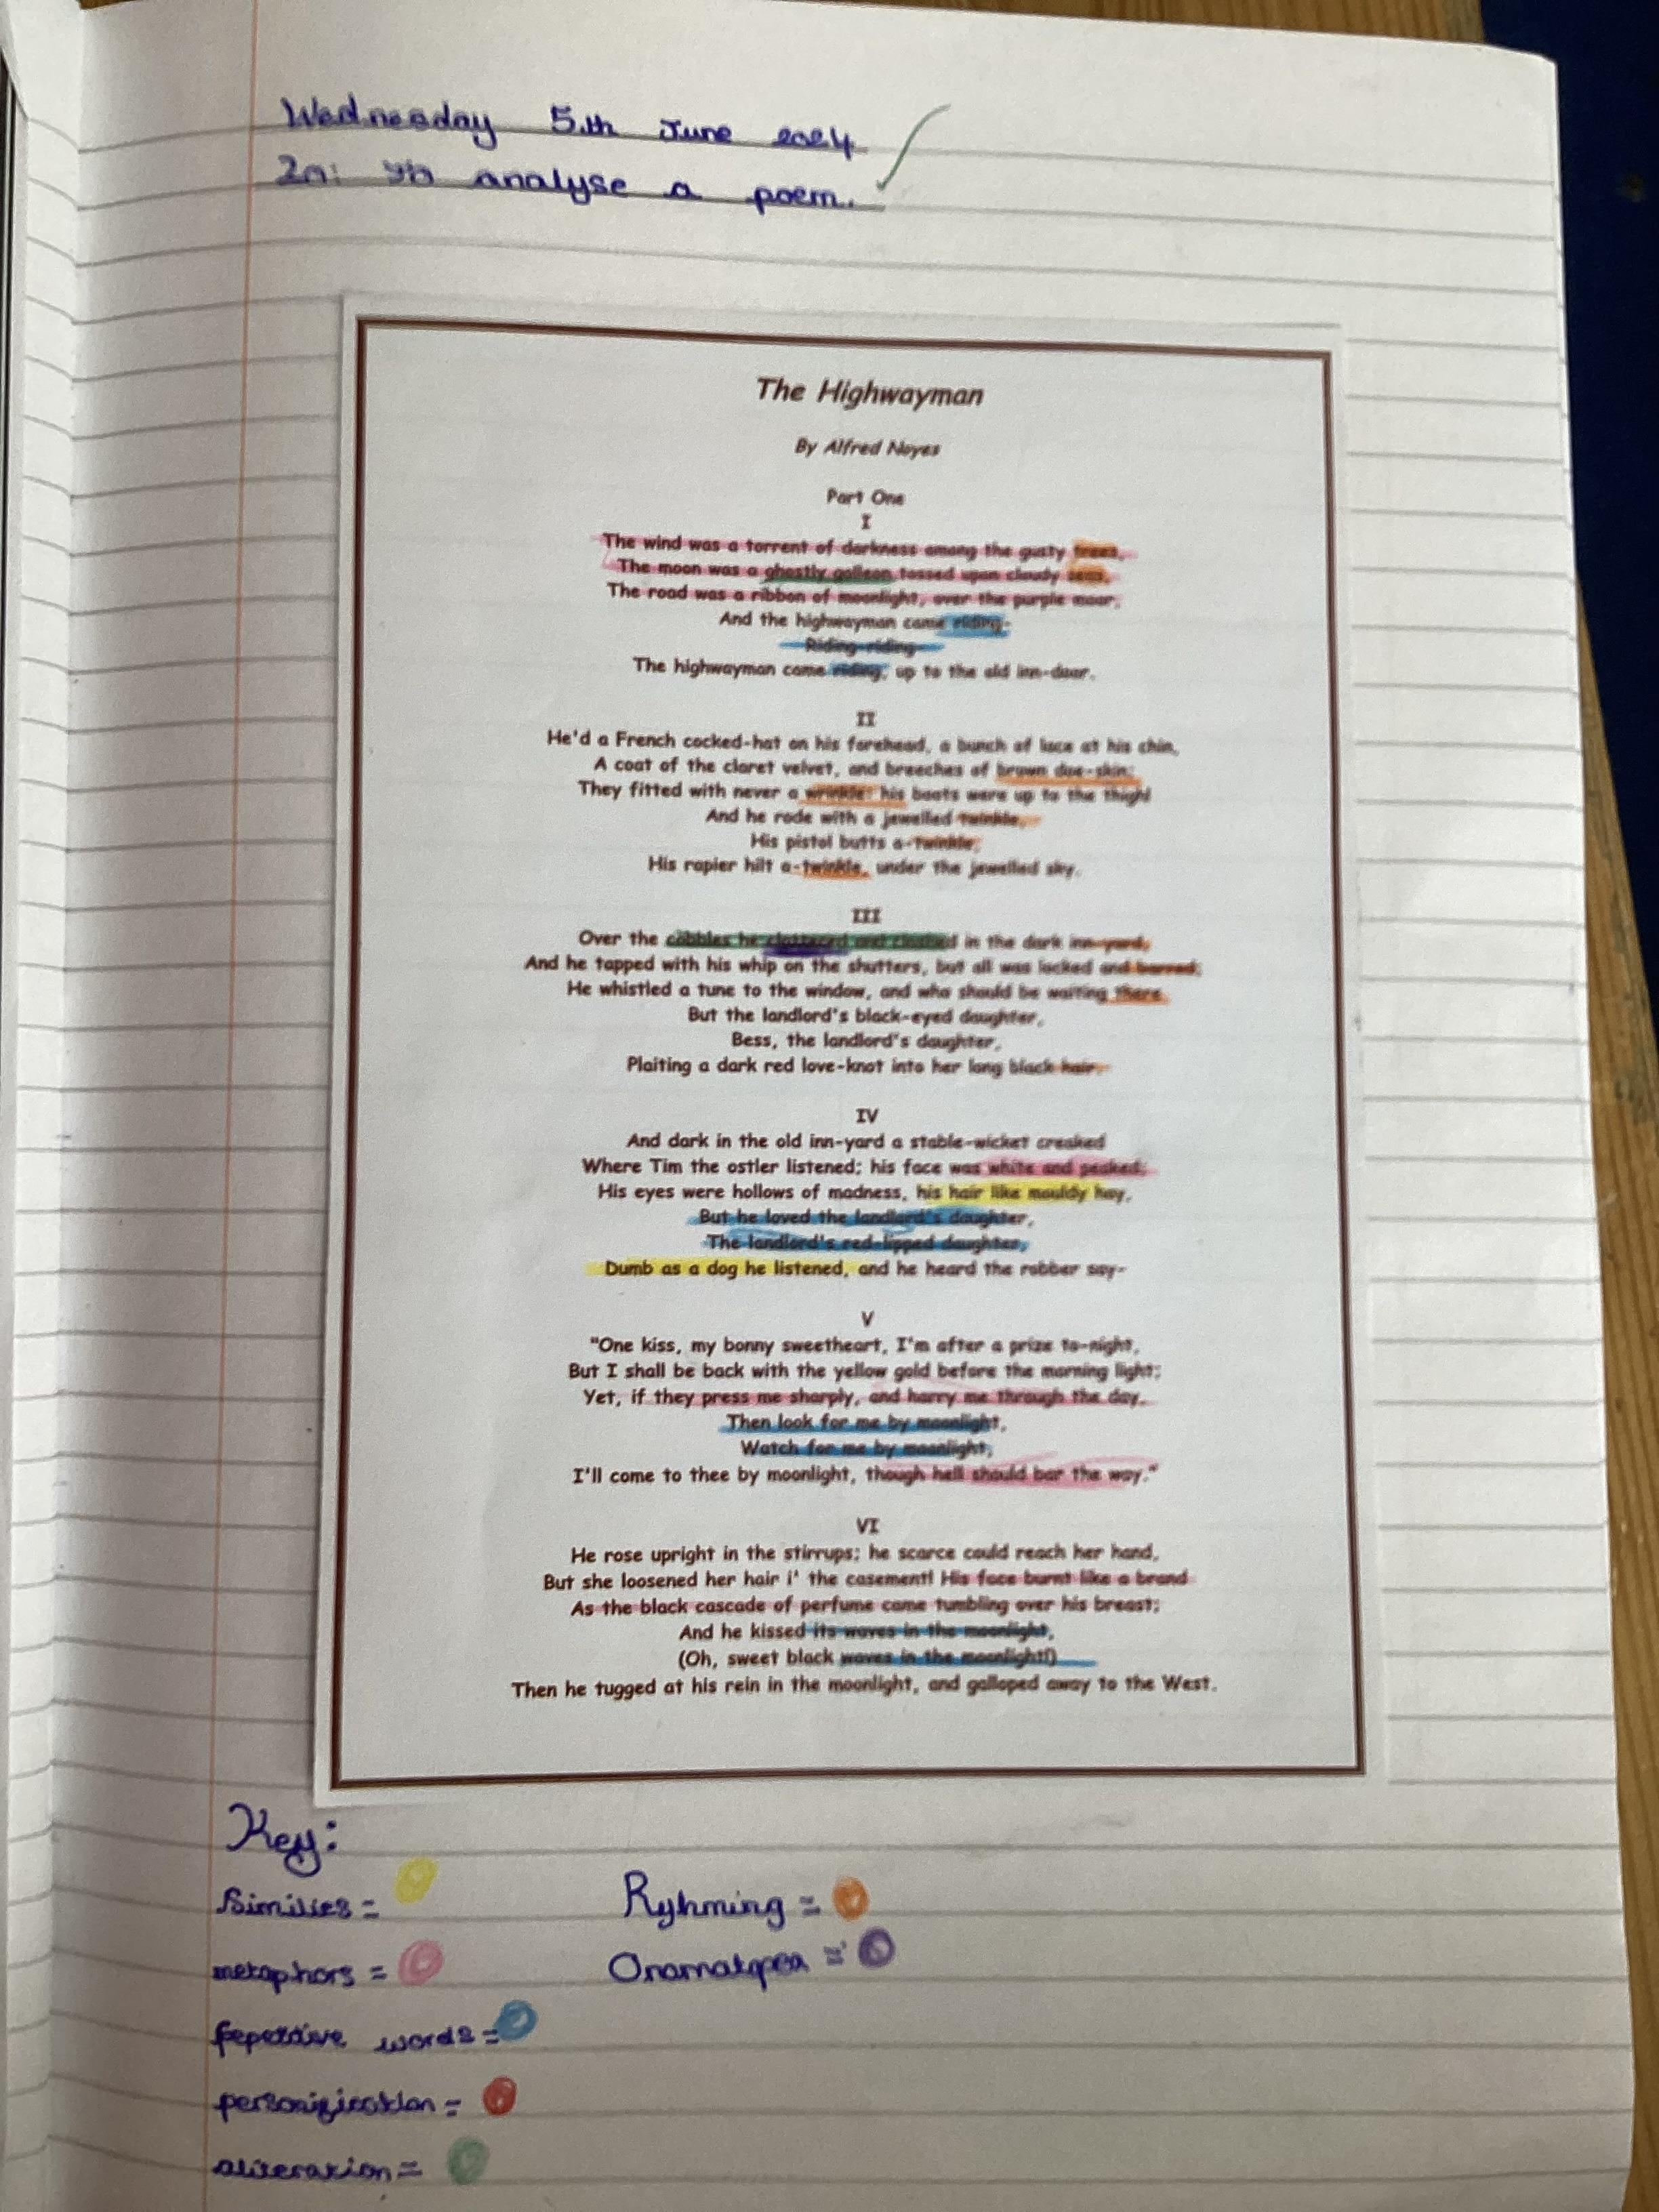 Wednesday 5th June 2024
analyse a poem.
The Highwayman
By Alfred Noyes
Part One
I
The wind was a torrent of darkness among the gusty trees,
The moon was a ghostly galleon tossed upon cloudy seas,
The road was a ribbon of moonlight, over the purple moor,
And the highwayman came riding-
Riding-riding-
The highwayman came riding, up to the old inn-door.
II
He'd a French cocked-hat on his forehead, a bunch of lace at his chin,
A coat of the claret velvet, and breeches of brown doe-skin;
They fitted with never a wrinkle: his boots were up to the thigh!
And he rode with a jewelled twinkle,
His pistol butts a-twinkle,
His rapier hilt a-twinkle, under the jewelled sky.
III
Over the cobbles he clattered and clashed in the dark inn-yard,
And he tapped with his whip on the shutters, but all was locked and barred;
He whistled a tune to the window, and who should be waiting there
But the landlord's black-eyed daughter,
Bess, the landlord's daughter,
Plaiting a dark red love-knot into her long black hair.
IV
And dark in the old inn-yard a stable-wicket creaked
Where Tim the ostler listened; his face was white and peaked;
His eyes were hollows of madness, his hair like mouldy hay,
But he loved the landlord's daughter,
The landlord's red-lipped daughter,
Dumb as a dog he listened, and he heard the robber say-
V
"One kiss, my bonny sweetheart, I'm after a prize to-night,
But I shall be back with the yellow gold before the morning light;
Yet, if they press me sharply, and harry me through the day,
Then look for me by moonlight,
Watch for me by moonlight,
I'll come to thee by moonlight, though hell should bar the way."
VI
He rose upright in the stirrups; he scarce could reach her hand,
But she loosened her hair i' the casement! His face burnt like a brand
As the black cascade of perfume came tumbling over his breast;
And he kissed its waves in the moonlight,
(Oh, sweet black waves in the moonlight!)
Then he tugged at his rein in the moonlight, and galloped away to the West.
Key:
Similies =
Ryhming =
metaphors =
Onamatopea =
words =
personification =
aliteration =